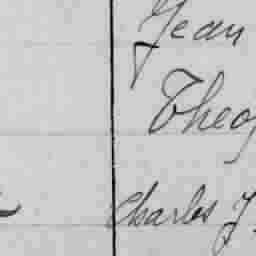 Jean
Theo
Charles J.